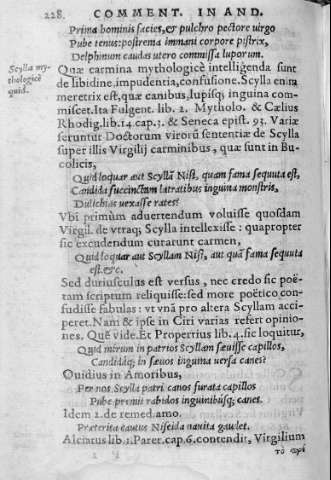 228. COMMENT. IN AND.
Prima hominis facies, & pulchro pectore uirgo
Pube tenus: postrema immani corpore pistrix,
Delphinum caudas utero commissa luporum.
Scylla my-
thologicè
quid.
Quæ carmina mythologicè intelligenda sunt
de libidine, impudentia, confusione. Scylla enim
meretrix est, quæ canibus, lupisq; inguina com-
miscet. Ita Fulgent. lib. 2. Mytholo. & Cælius
Rhodig. lib. 14. cap. 3. & Seneca epist. 93. Variæ
feruntur Doctorum virorũ sententiæ de Scylla
super illis Virgilij carminibus, quæ sunt in Bu-
colicis,
Quid loquar aut Scyllã Nisi, quam fama sequuta est,
Candida succinctam latratibus inguina monstris,
Dulichias uexasse rates?
Vbi primùm aduertendum voluisse quosdam
Virgil. de vtraq; Scylla intellexisse: quapropter
sic excudendum curarunt carmen,
Quid loquar aut Scyllam Nisi, aut quã fama sequuta
est. &c.
Sed duriusculus est versus, nec credo sic poë-
tam scriptum reliquisse: sed more poëtico con-
fudisse fabulas: vt vnã pro altera Scyllam acci-
peret. Nam & ipse in Ciri varias refert opinio-
nes. Quẽ vide. Et Propertius lib. 4. sic loquitur,
Quid mirum in patrios Scyllam sæuisse capillos,
Candidaq; in sæuos inguina uersa canes?
Ouidius in Amoribus,
Per nos Scylla patri canos furata capillos
Pube premit rabidos inguinibusq; canes.
Idem 1. de remed. amo.
Præterita cautus Niseida nauita gaudet.
Alciatus lib. 1. Paret. cap. 6. contendit, Virgilium